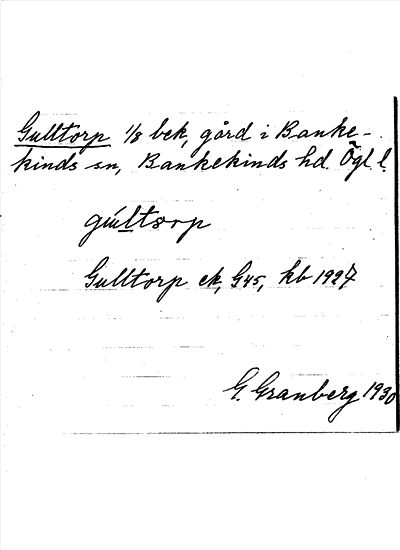 Gulltorp 1/8 bek, gård i Banke-
kinds sn, Bankekinds hd. Ögl l.
Gulltorp ek, G45, kb 1927
G. Granberg 1930